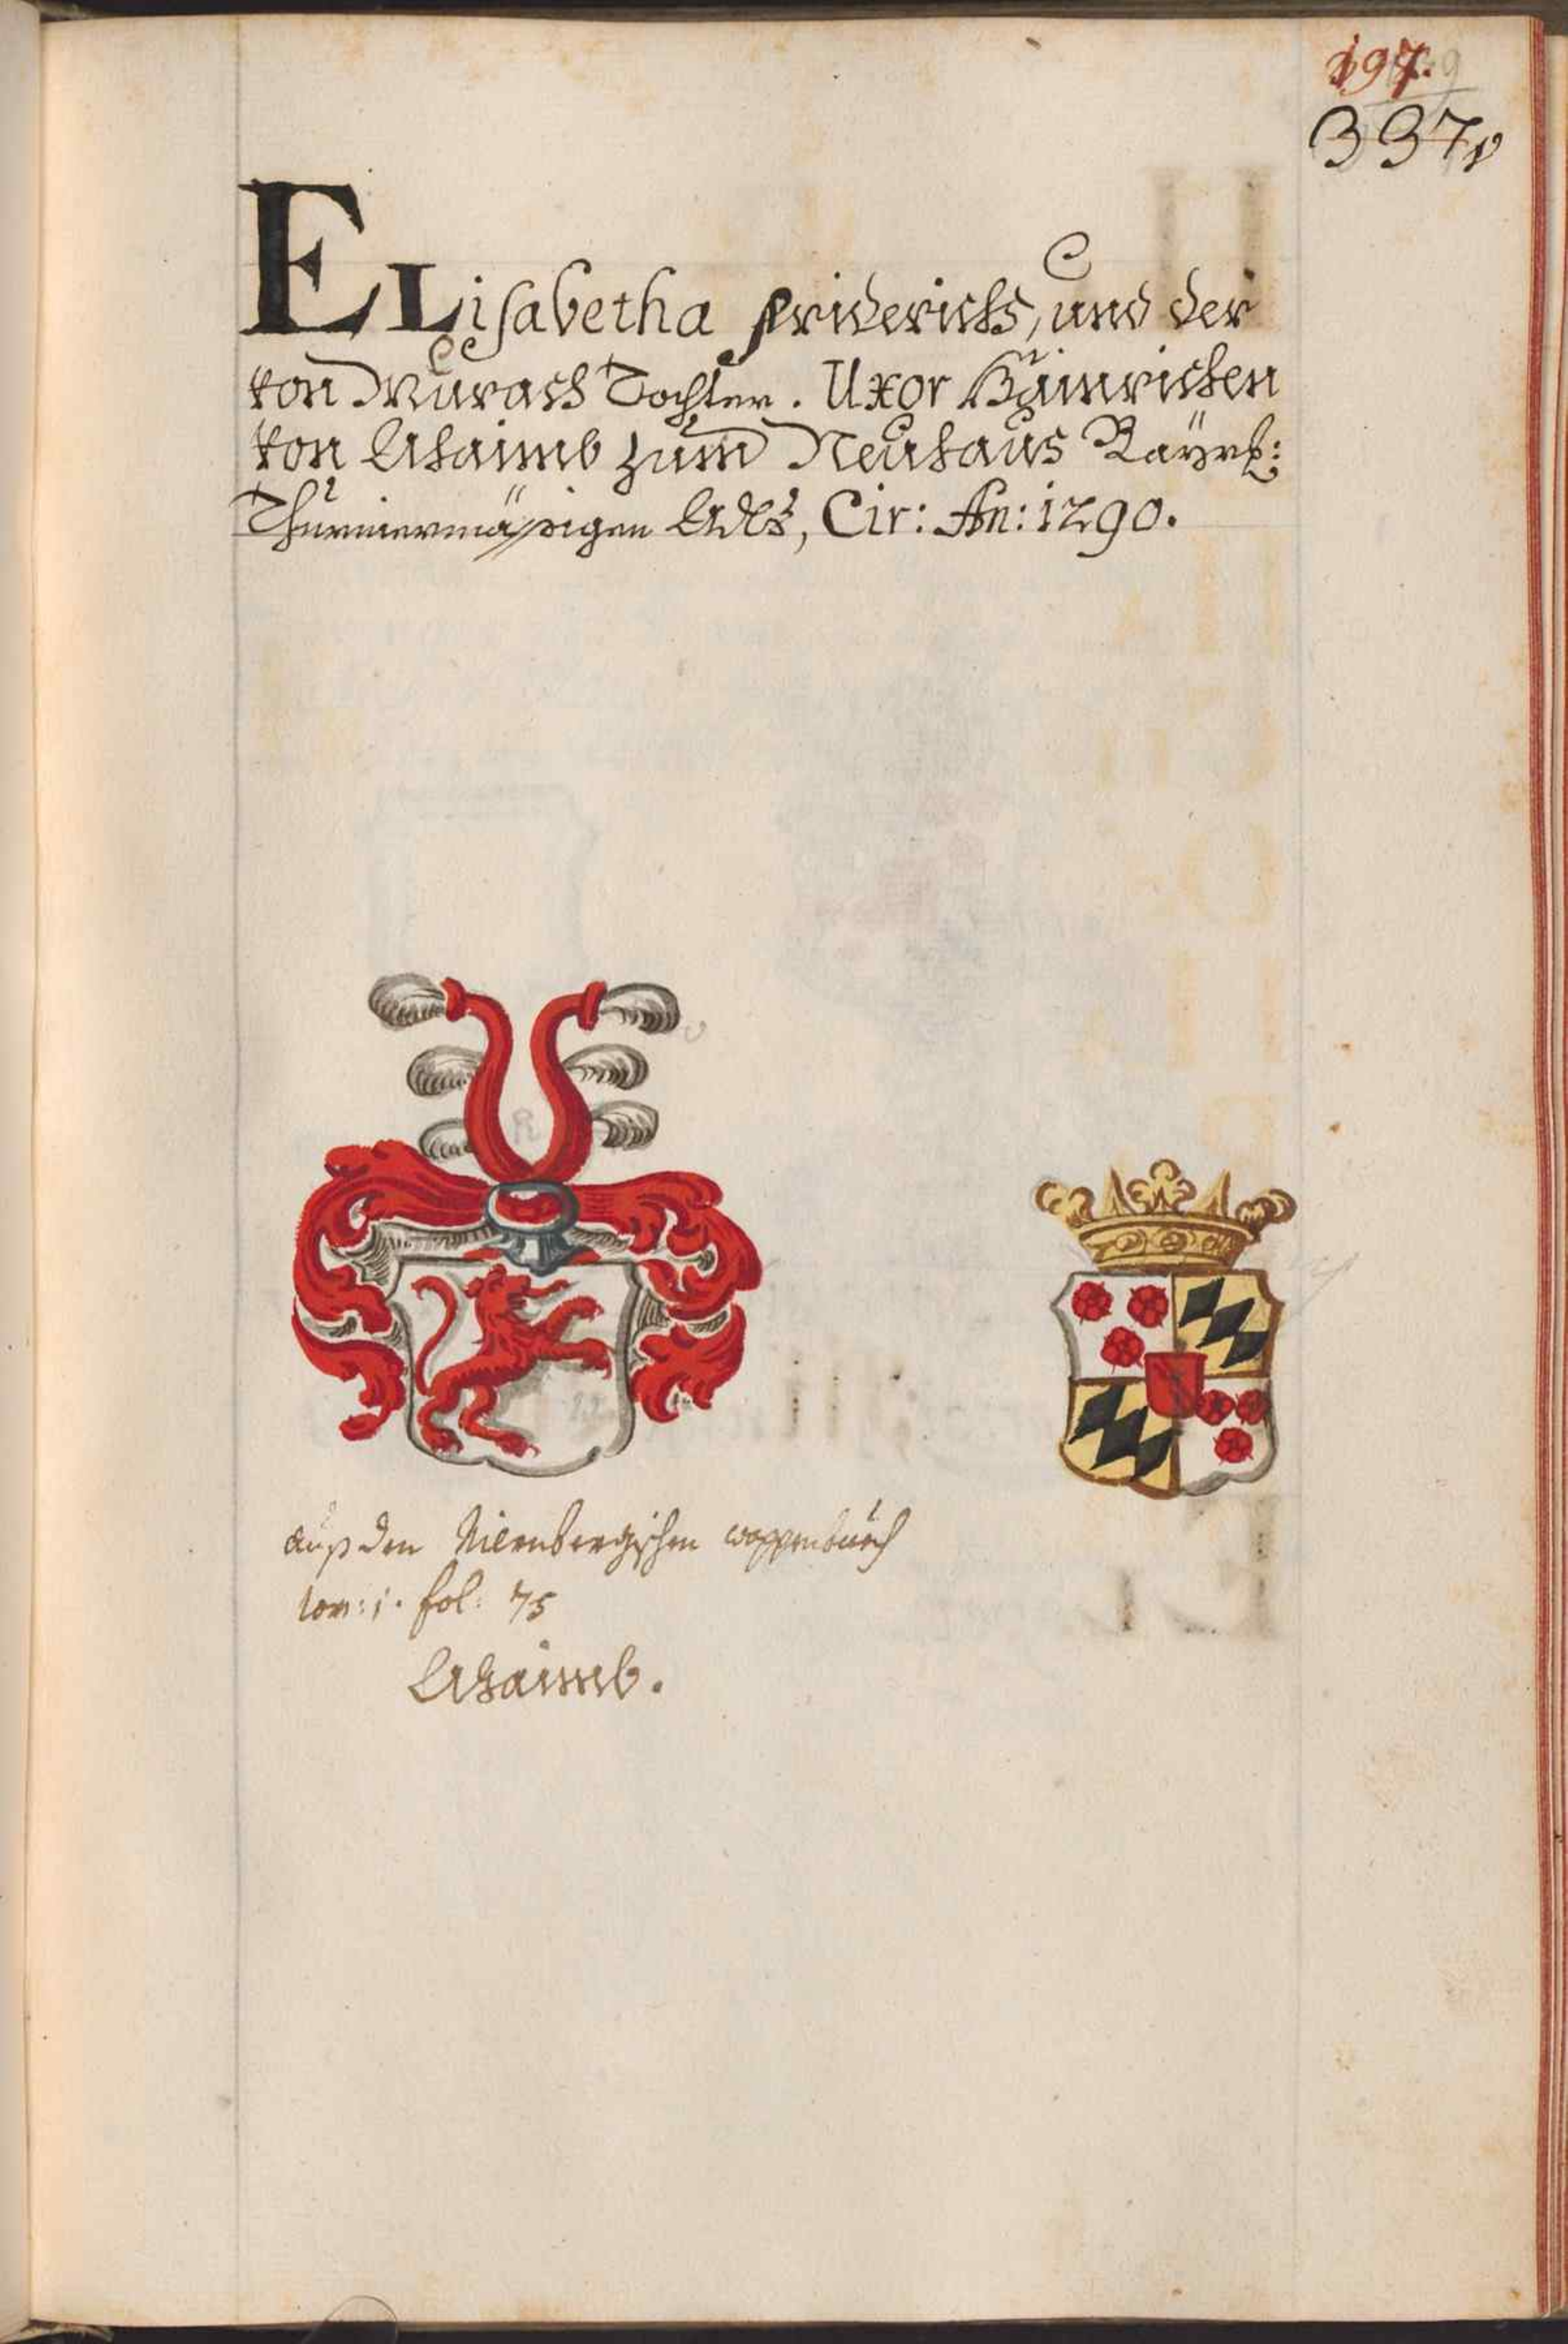 197.
337
ELisabetha Friderichs, und der
von Murach Tochter. Uxor Hainrichen
von Ahaimb zum Neuhaus Bayrl:
Thurniermässigen Adls, Cir: An: 1290.
auß den Nirnbergischen wappenbuch
tom: 1. fol: 75
Ahaimb.